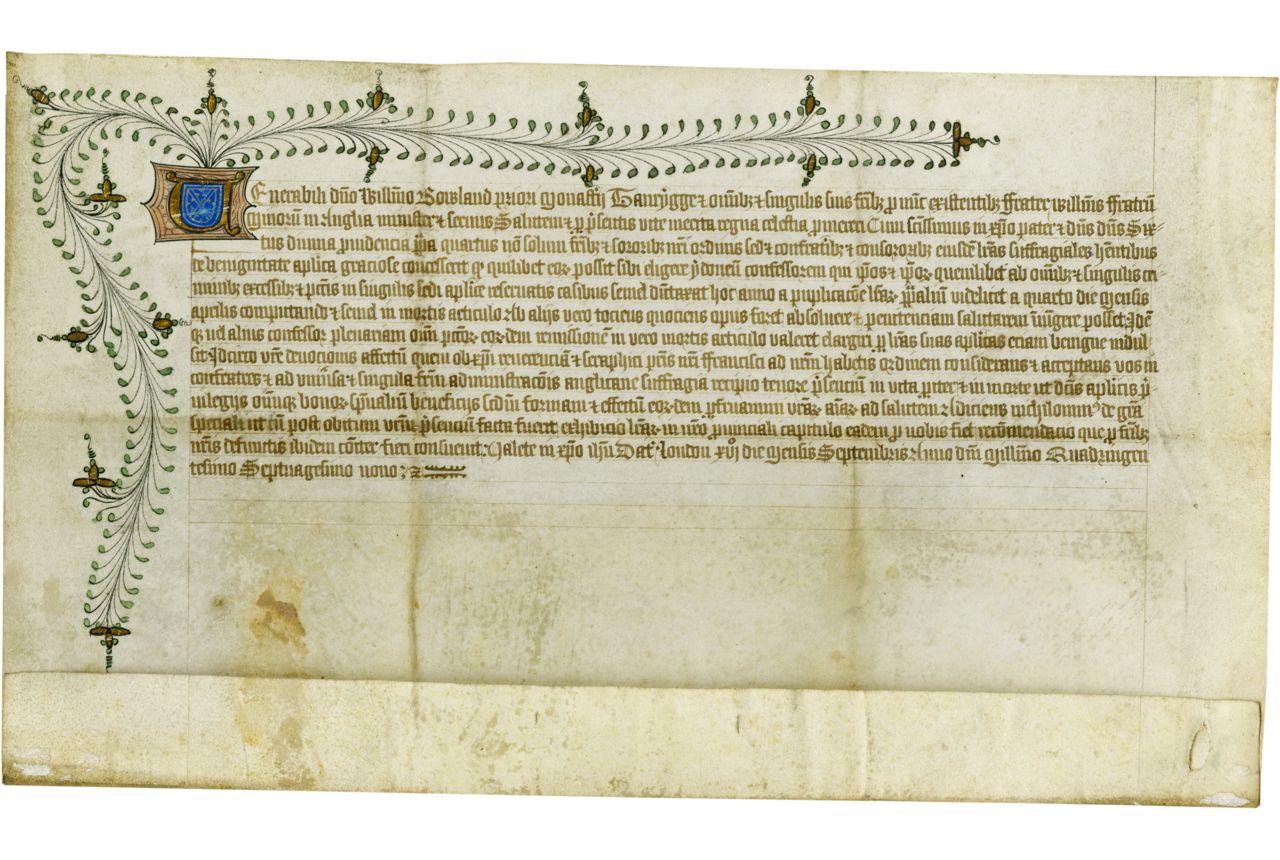 Uenerabili dño Willm̄o Rowland p̱riori Monasťij Tanrygge & om̄ibȝ & singulis suis fratribȝ p̱ nūc existentibȝ ffrater Willm̄s ffratrū
Minorū in Anglia minister & seruus Salutem & p̱ p̄sentis vite merita regna celestia p̱mereri Cum scīssimus in xp̄o pater & dn̄s dn̄s Six
tus diuina p̱uidencia p̄pa quartus nō solum fratribȝ & sororibȝ nr̄i ordinis sed & confratribȝ & consororibȝ eiusdem lr̄as suffragiales hēntibus
de benignitate aplica graciose concesserit qd̄ quilibet eorꝝ possit sibi eligere ydoneū confessorem qui ip̄os & ip̄orꝝ quemlibet ab om̄ibȝ & singulis cri
minibȝ excessibȝ & pctīs in singulis sedi aplice reseruatis casibus semel dūtaxat hoc anno a puplicacōe lr̄arꝝ p̄paliū videlicet a quarto die mensis
aprilis computando & semel in mortis articulo ab alijs vero tociens quociens opus foret absoluere & penitenciam salutarem iniūgere possetꝫ Idē
qꝫ uel alius confessor plenariam om̄ pctōrꝝ eorꝝdem remissionē in vero mortis articulo valeret elargiri p̱ lr̄as suas aplicas eciam benigne indul
sit Idcirco vr̄e deuocionis affectū quem ob xp̄i reuerenciā & seraphici pr̄is nr̄i ffrancisci ad nr̄m habetis ordinem considerans & acceptans vos in
confratres & ad vniūsa & singula fr̄m administracōis anglicane suffragia recipio tenore p̄senciū in vita p̱iter & in morte ut dc̄īs aplicis p̄
uilegijs om̄iūqꝫ bonorꝝ sp̄ualiū beneficijs scdm̄ formam & effectū eorꝝdem p̱fruamini vrārꝝ aīarꝝ ad salutem Adiciens nichilomin⁹ de gr̄a
speciali ut cū post obitum vr̄m p̄senciū facta fuerit exhibicio lr̄arꝝ in nr̄o p̱uinciali capitulo eadem p̱ vobis fiet recōmendacio que p̱ fratribȝ
nr̄is defunctis ibidem cōiter fieri consueuit Valete in xp̄o ih̄u Dat̄ london xvj die mensis Septembris Anno dn̄i Millīmo Quadringen
tesimo Septuagesimo nono